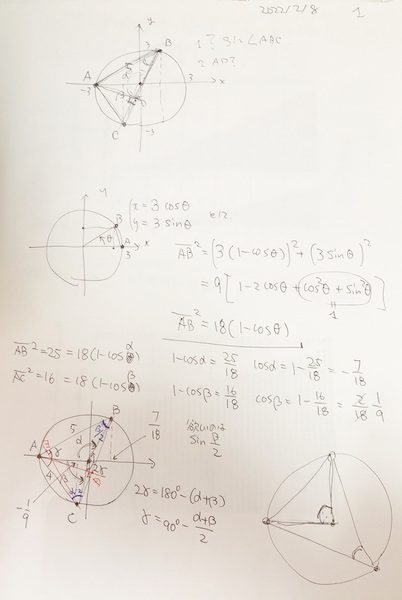 2022/2/8 1
y
3
B
A
-3
3
x
C
-3
1? sin∠ABC
2 AD?
y
B
θ
A
3
x
{x = 3 cosθ
y = 3 sinθ
AB² = (3(1-cosθ))² + (3sinθ)²
= 9[1-2cosθ + cos²θ + sin²θ]
1
AB² = 18(1-cosθ)
AB² = 25 = 18(1-cosα)
AC² = 16 = 18(1-cosβ)
1-cosα = 25/18 cosα = 1-25/18 = -7/18
1-cosβ = 16/18 cosβ = 1-16/18 = 2/18 1/9
B
5
α
β/2
A
γ
4
β
2γ
C
-1/9
7/18
sin β/2
2γ = 180° - (α+β)
γ = 90° - (α+β)/2